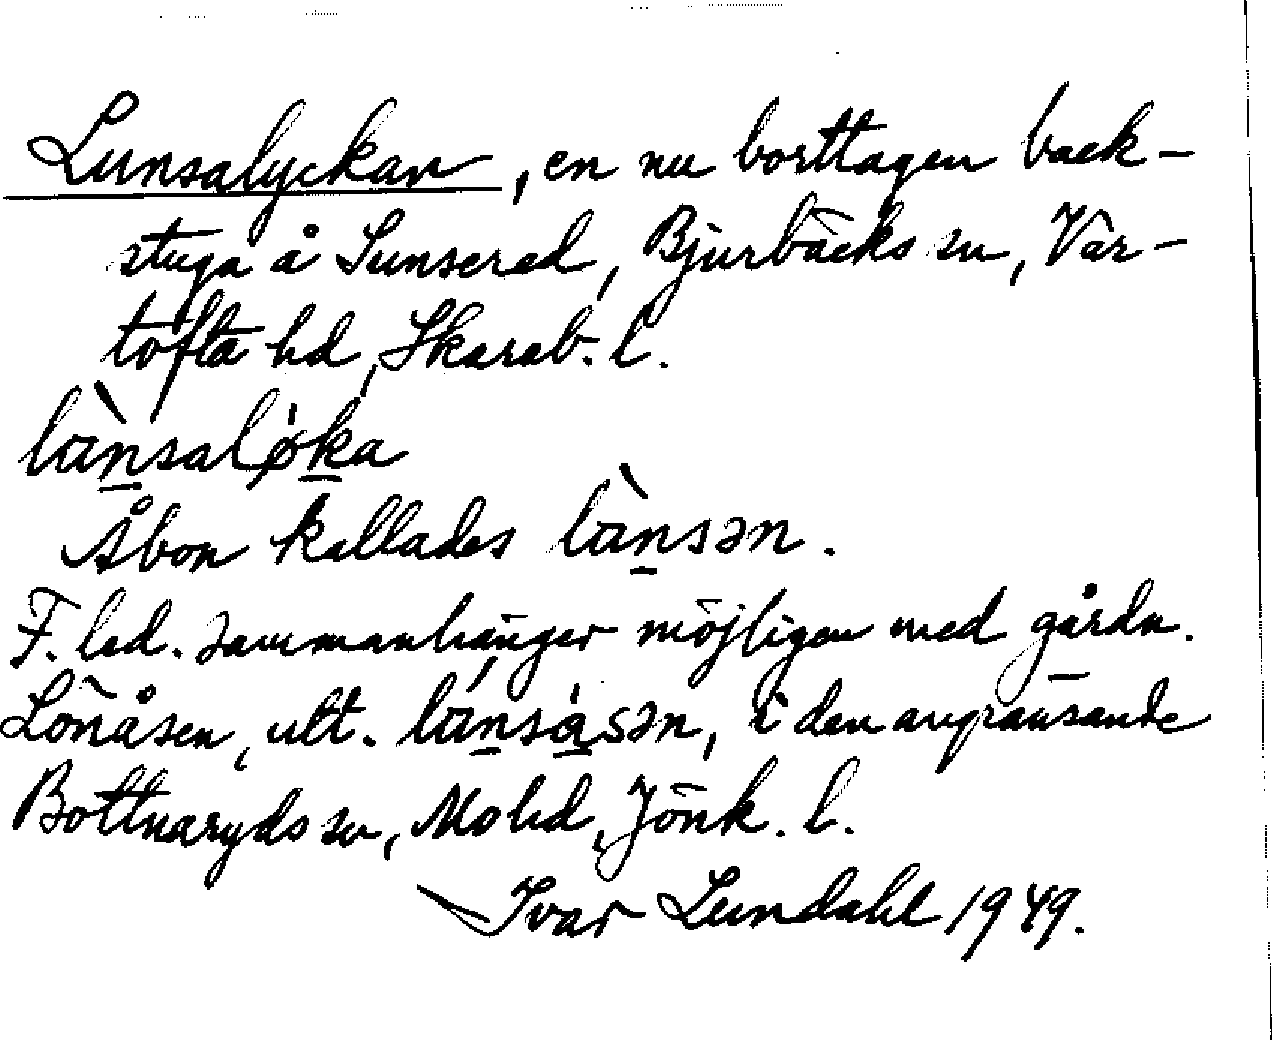 Lunsalyckan, en nu borttagen back-
stuga å Sunserad, Bjurbäcks sn, Var-
tofta hd, Skarab. l.
lɑ̀nsalø̀ka
Åbon kallades lɑ̀nsən.
F. led. sammanhänger möjligen med gårdn.
Lönåsen, utt. lɑ́nsåsən, i den angränsande
Bottnaryds sn, Mo hd, Jönk. l.
Ivar Lundahl 1949.